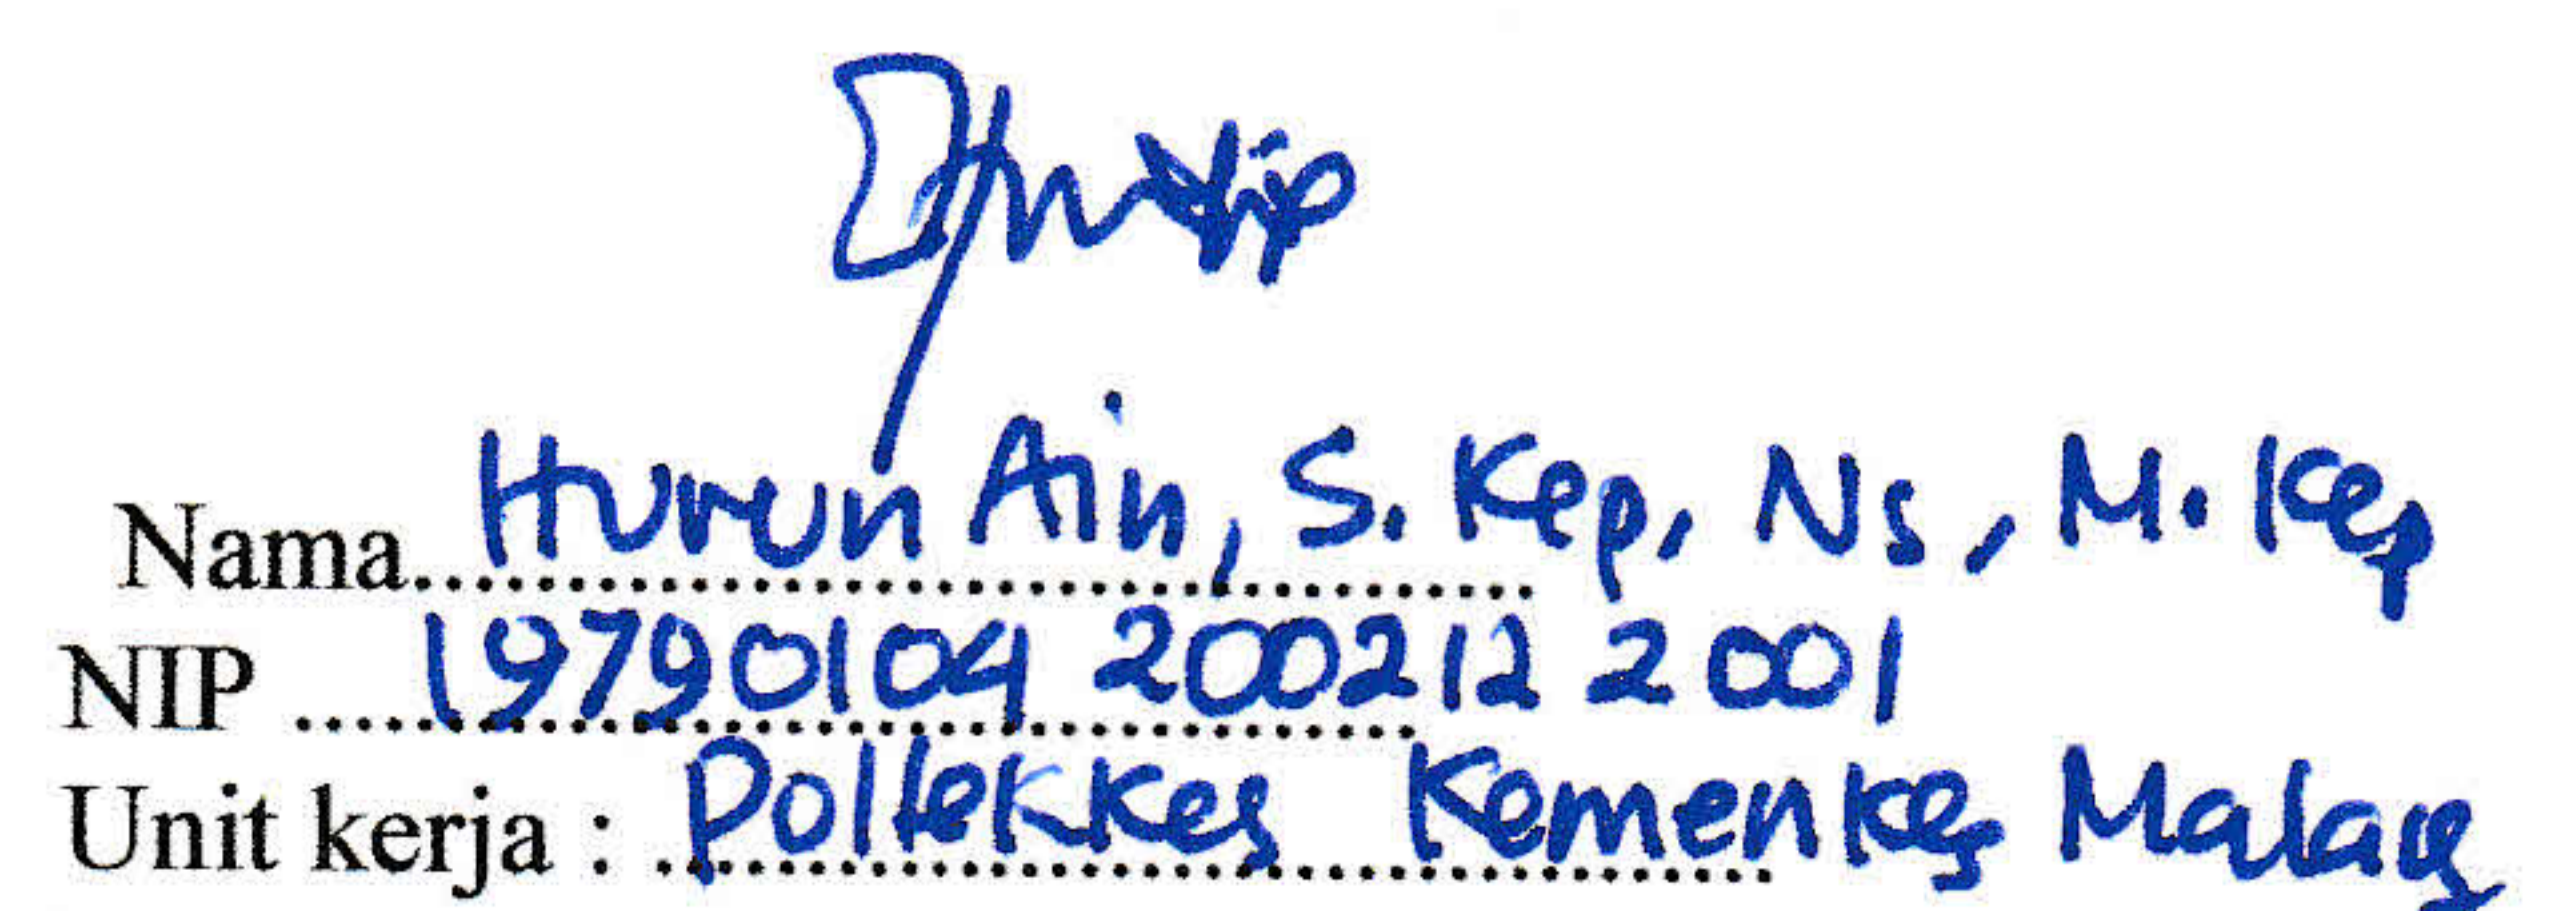 Nama Hurun Ain, S. Kep, Ns, M. Kep
NIP 19790104 200212 2001
Unit kerja : Poltekkes Kemenkes Malang